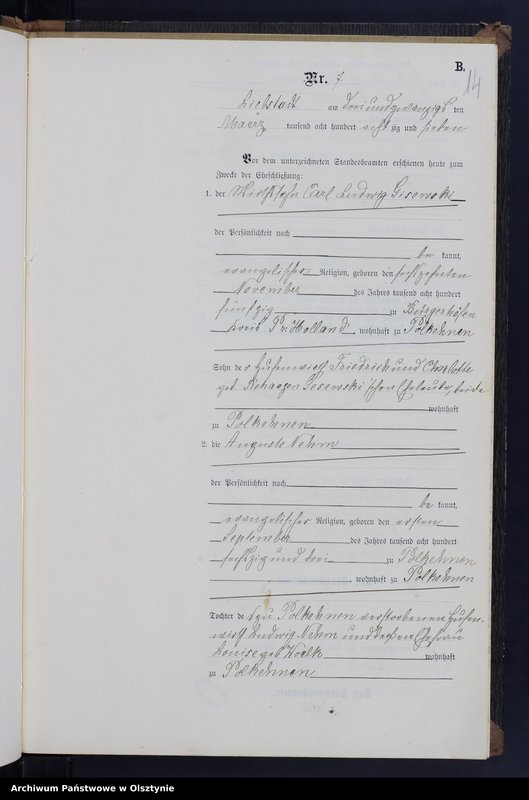 B.
14
Nr. 7
Liebstadt am dreiundzwanzigsten
Maerz tausend acht hundert acht zig und sieben
Vor dem unterzeichneten Standesbeamten erschienen heute zum
Zwecke der Eheschließung:
1. der Wirthssohn Carl Ludwig Gisewski
der Persönlichkeit nach
be kannt,
evangelischer Religion, geboren den sechszehnten
November des Jahres tausend acht hundert
fünfzig zu Bürgerhöfen
Kreis Pr. Holland, wohnhaft zu Polkehnen
Sohn des Hufenwirth Friedrich und Charlotte
geb. Gesewski'schen Eheleute, beide
wohnhaft
zu Polkehnen
2. die Auguste Nehm
der Persönlichkeit nach
be kannt,
evangelischer Religion, geboren den ersten
September des Jahres tausend acht hundert
sechszig und drei zu Polkehnen
, wohnhaft zu Polkehnen
Tochter des zu Polkehnen verstorbenen Hufen-
wirth Ludwig Nehm und dessen Ehefrau
Louise geb. Woelk wohnhaft
zu Polkehnen
Archiwum Państwowe w Olsztynie